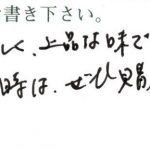 書き下さい。
しく、上品な味で
時は、ぜひ買